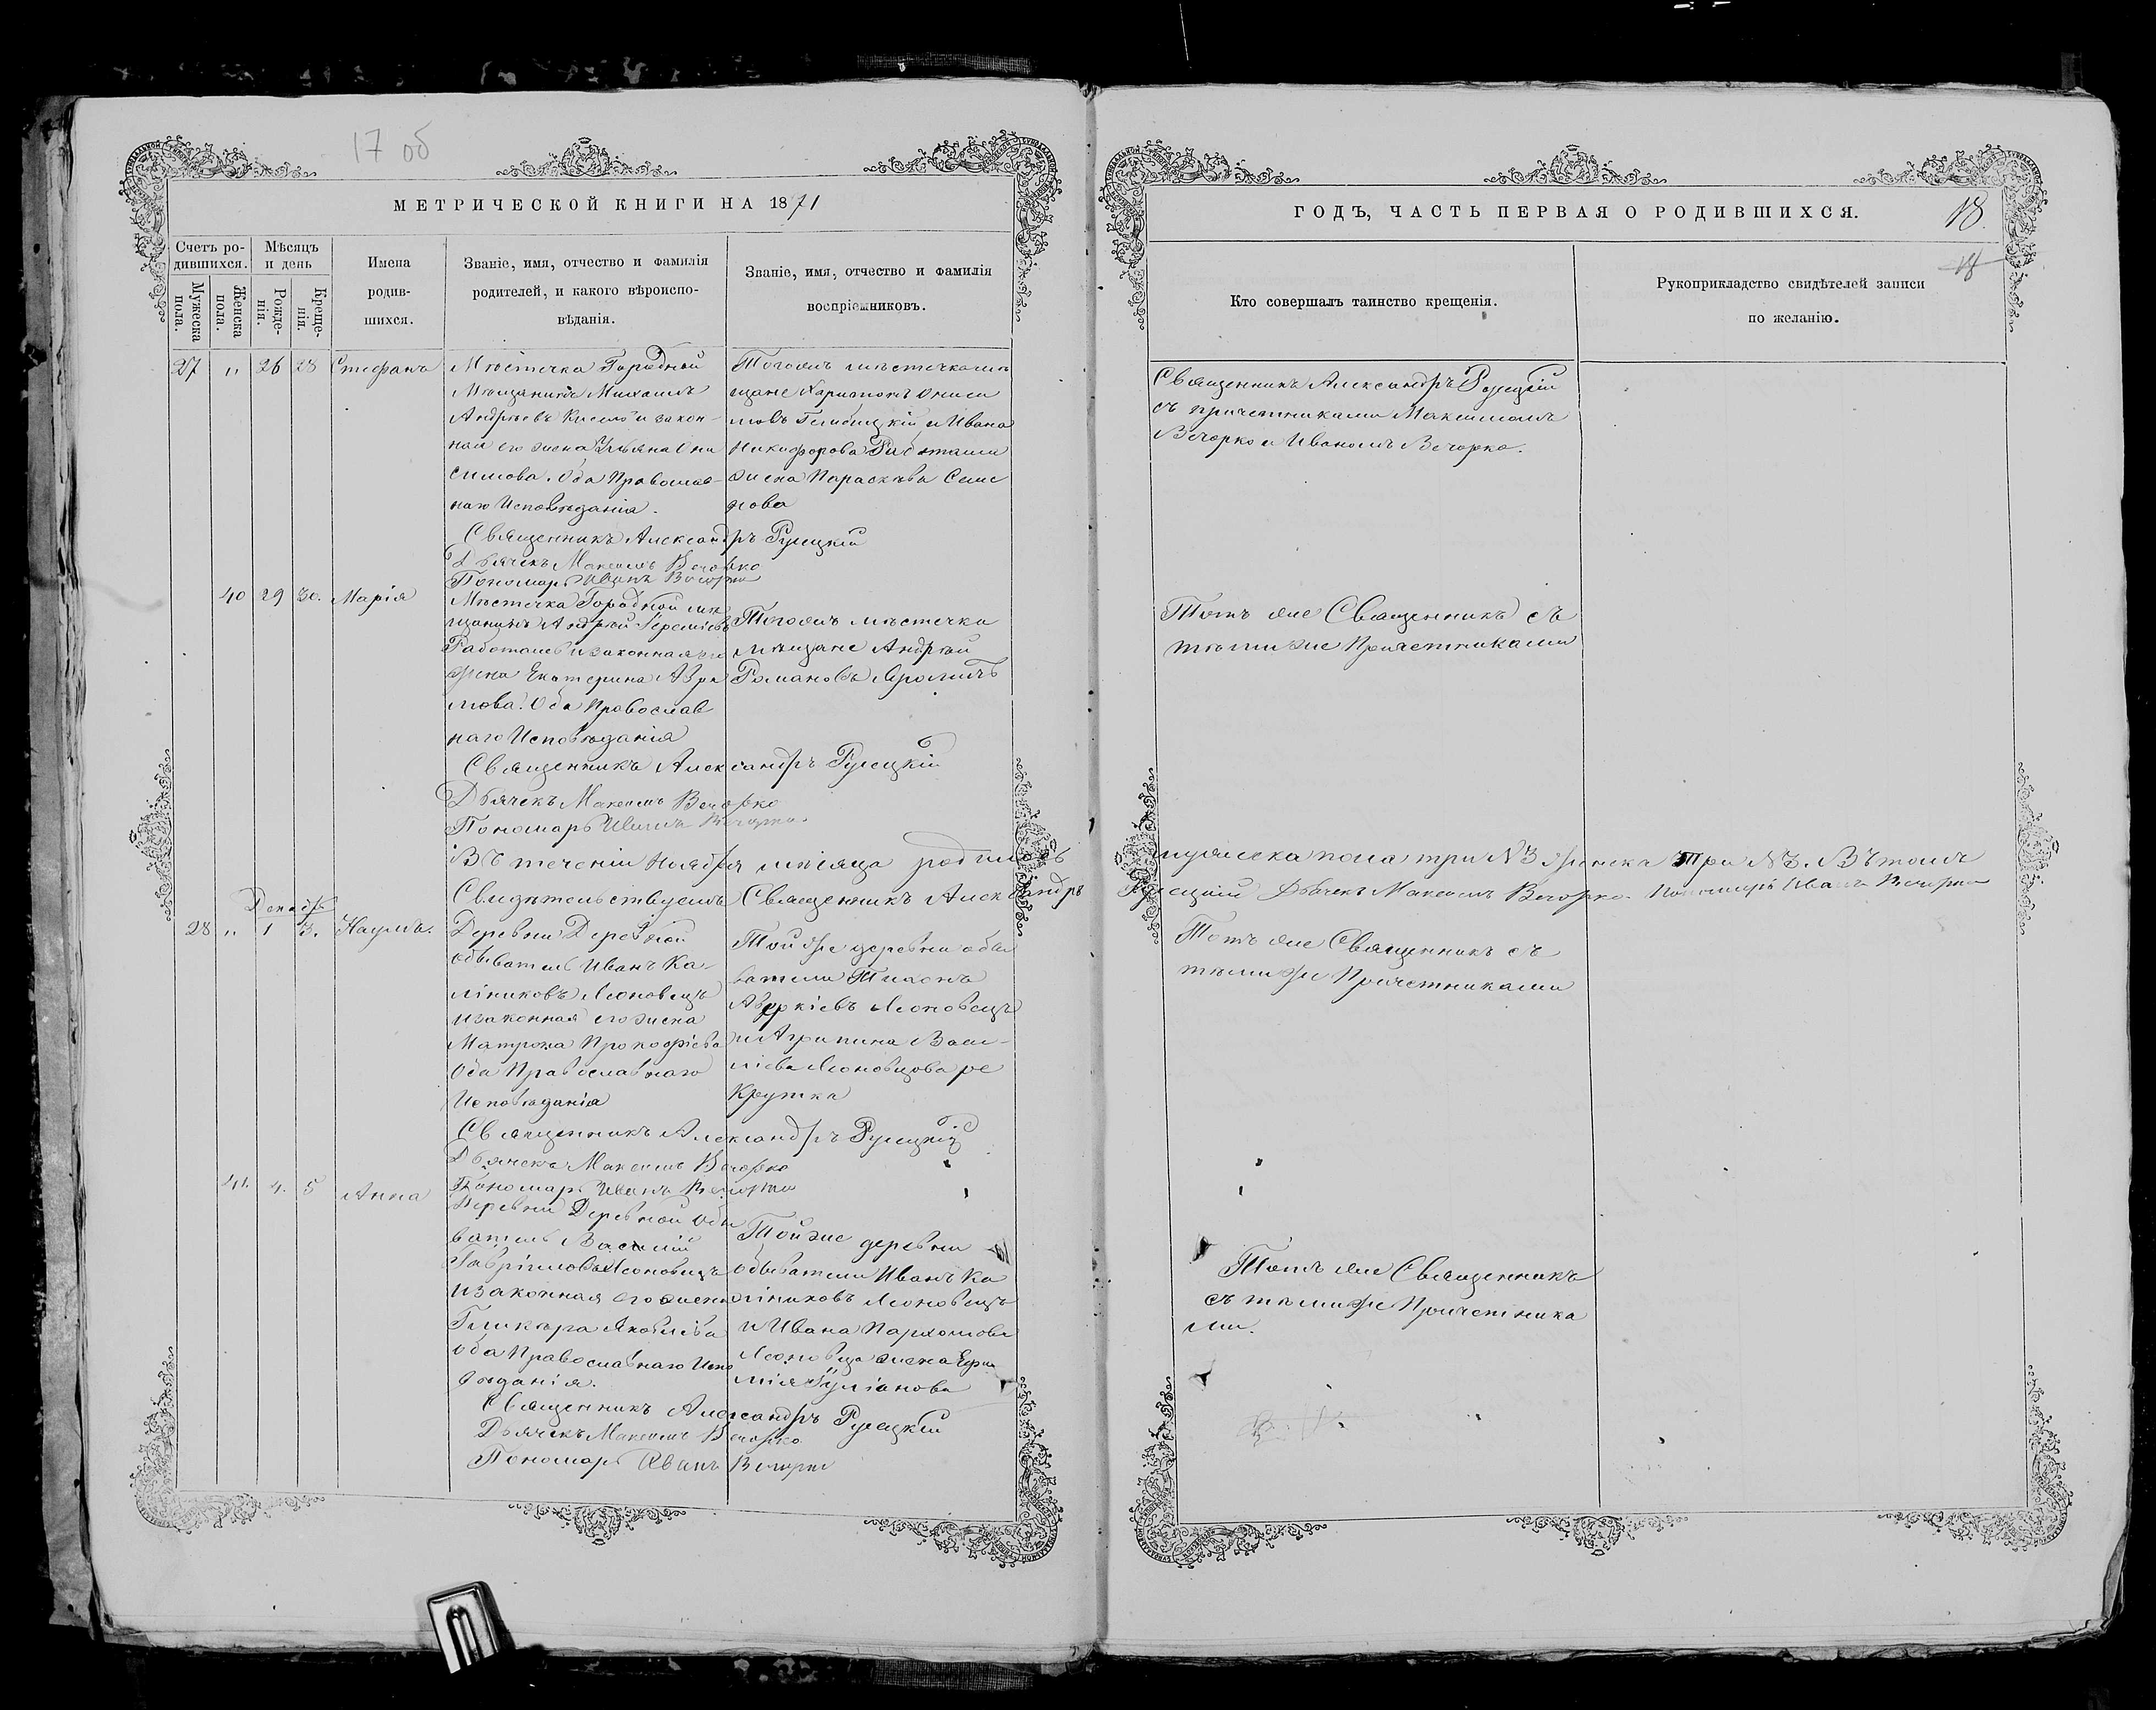 17 об
МЕТРИЧЕСКОЙ КНИГИ НА 1871
Счетъ ро-
дившихся.
Мужеска пола.
Женска пола.
Мѣсяцъ
и день
Рожде-
нія.
Креще-
нія.
Имена
родив-
шихся.
Званіе, имя, отчество и фамилія
родителей, и какого вѣроиспо-
вѣданія.
Званіе, имя, отчество и фамилія
воспріемниковъ.
27 " 26 28 Стефанъ
Мѣстечка Городной
Мѣщанинъ Михаилъ
Андрѣевъ и закон-
ная его жена Ульяна Они
симова. Оба Православ-
наго Исповѣданія.
Тогожъ мѣстечка мѣ
щане Харитонъ Ониси
мовъ и Ивана
Никифорова
жена Параскева Семе
нова
Священникъ Александръ Ружицкій
Дьячекъ Максимъ Вечорко
Пономарь Иванъ Вечорко
40 29 30. Марія
Мѣстечка Городной мѣ
щанинъ Андрей Іереміевъ
и законная его
жена Екатерина Авра
мова. Оба Православ
наго Исповѣданія
Тогожъ мѣстечка
мѣщане Андрей
Романовъ
Священникъ Александръ Ружицкій
Дьячекъ Максимъ Вечорко
Пономарь Иванъ Вечорко.
Въ теченіи Ноября мѣсяца родилось
Свидѣтельствуемъ Священникъ Александръ
Декабрь
28 " 1 3. Наумъ.
Деревни Деревной
обыватель Иванъ Ка-
линиковъ Леоновецъ
и законная его жена
Матрона Прокофіева
Оба Православнаго
Исповѣданія
Той же деревни обы
ватели Тихонъ
Аверкіевъ Леоновецъ
и Агрипина Васи-
ліева Леоновцова ре
крутка
Священникъ Александръ Ружицкій
Дьячекъ Максимъ Вечорко
Пономарь Иванъ Вечорко
41. 4. 5 Анна
Деревни Деревной Обы
ватель Василій
Гавріиловъ Леоновецъ
и законная его жена
Гликера Яковлева
оба Православнаго Испо
вѣданія.
Той же деревни
обыватели Иванъ Ка
линиковъ Леоновецъ
и Ивана Пархомова
Леоновца жена Ефи
мія Іуліанова
Священникъ Александръ Ружицкій
Дьячекъ Максимъ Вечорко
Пономарь Иванъ Вечорко
ГОДЪ, ЧАСТЬ ПЕРВАЯ О РОДИВШИХСЯ.
18.
18
Кто совершалъ таинство крещенія.
Рукоприкладство свидѣтелей записи
по желанію.
Священникъ Александръ Ружицкій
съ причетниками Максимомъ
Вечорко и Иваномъ Вечорко.
Тотъ же Священникъ съ
тѣми же Причетниками
мужеска пола три №3 женска три №3. Въ томъ
Ружицкій Дьячекъ Максимъ Вечорко. Пономарь Иванъ Вечорко
Тотъ же Священникъ съ
тѣми же Причетниками
Тотъ же Священникъ
съ тѣми же Причетника
ми.